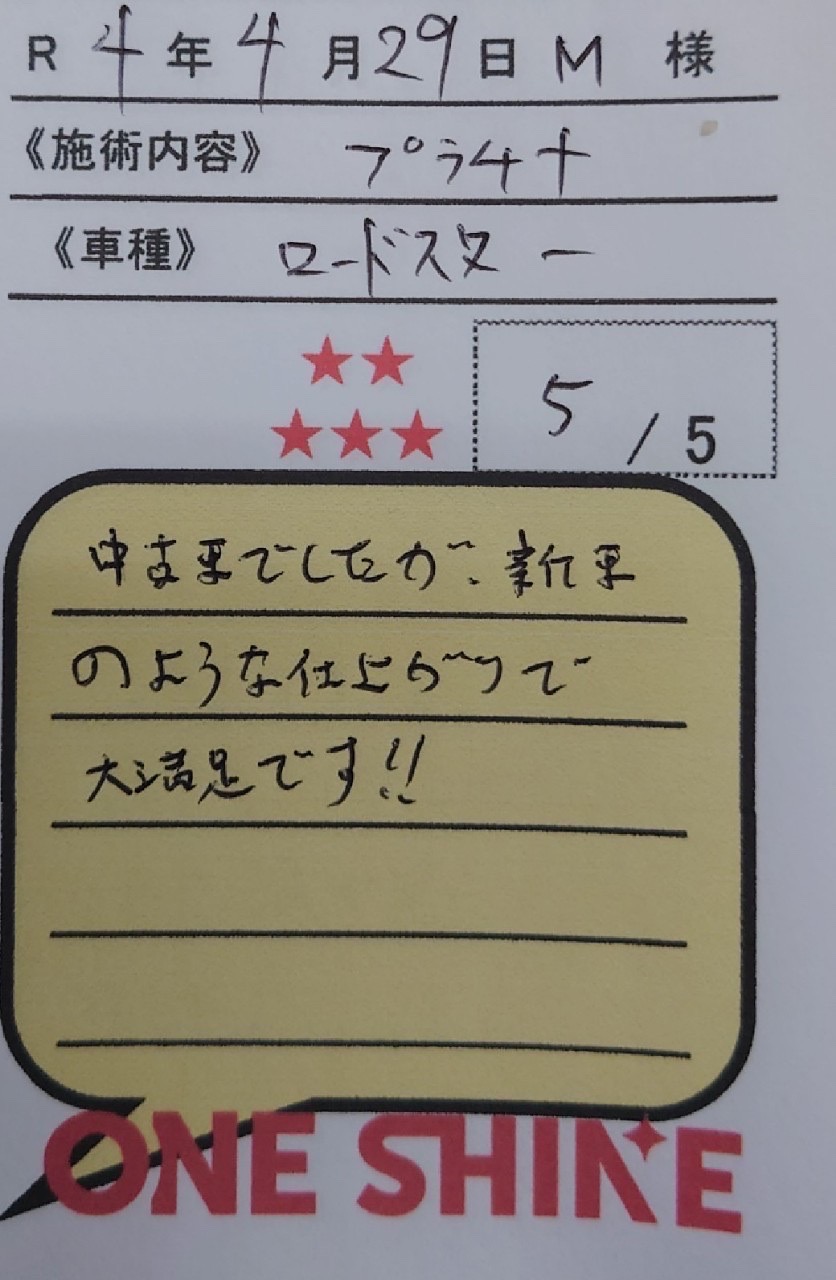 R 4年4月29日 M 様
《施術内容》 プラチナ
《車種》 ロードスター
★★
★★★
5 / 5
中古車でしたが、新車
のような仕上がりで
大満足です!!
ONE SHINE